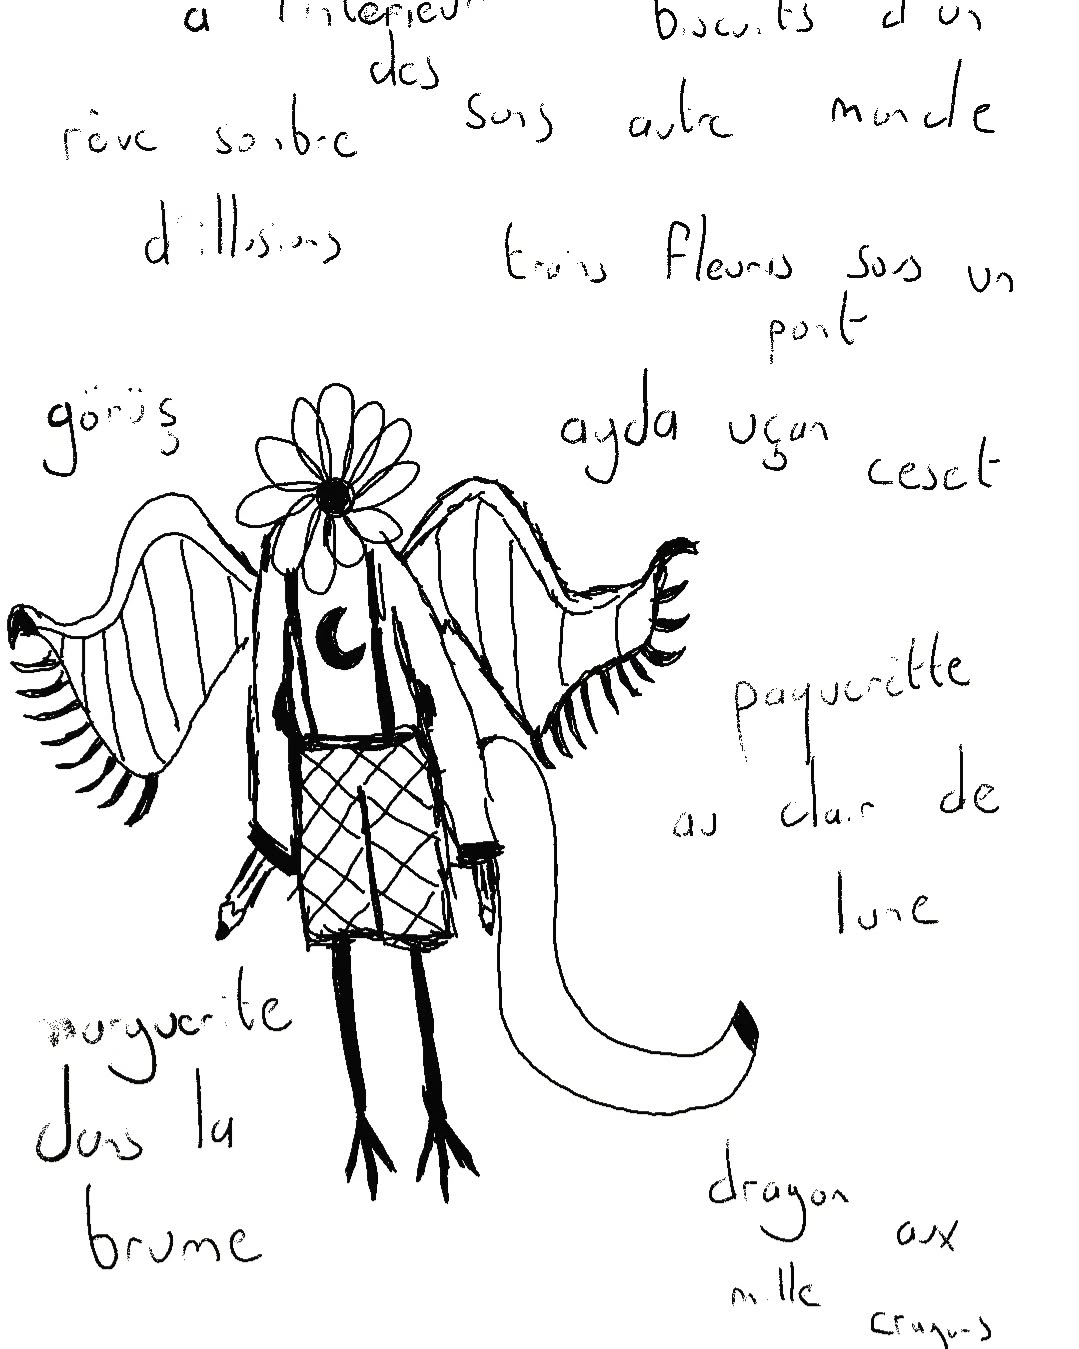 à l'intérieur
des
biscuits d'un
sons autre monde
rêve sombre
d'illusions
trois fleurs sous un
pont
görüş
ayda uçan
ceset
paquerette
au clair de
lune
marguerite
dans la
brume
dragon
aux
mille